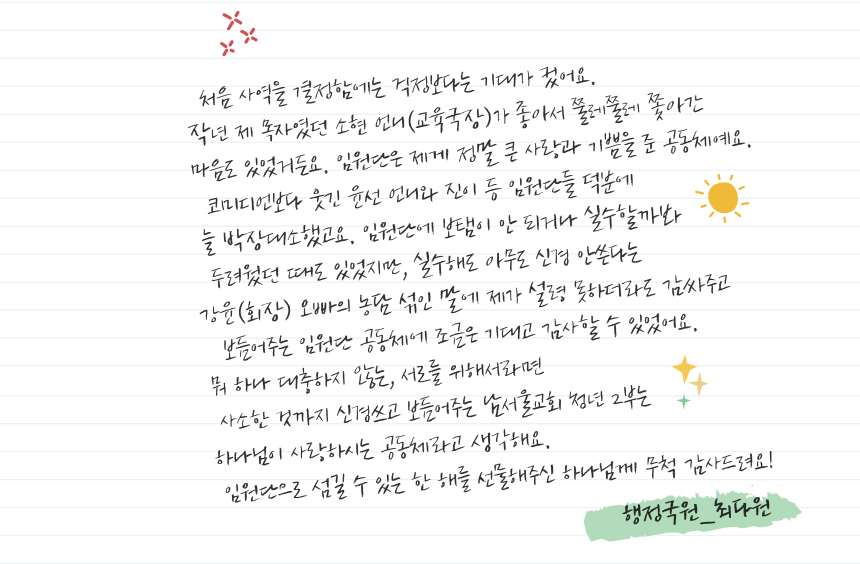 처음 사역을 결정함에는 걱정보다는 기대가 컸어요.
작년 제 목자였던 소현 언니(교육국장)가 좋아서 쫄레쫄레 쫓아간
마음도 있었거든요. 임원단은 제게 정말 큰 사랑과 기쁨을 준 공동체예요.
코미디언보다 웃긴 윤선 언니와 진이 등 임원단들 덕분에
늘 박장대소했고요. 임원단에 보탬이 안 되거나 실수할까봐
두려웠던 때도 있었지만, 실수해도 아무도 신경 안쓴다는
강윤(회장) 오빠의 농담 섞인 말에 제가 설령 못하더라도 감싸주고
보듬어주는 임원단 공동체에 조금은 기대고 감사할 수 있었어요.
뭐 하나 대충하지 않는, 서로를 위해서라면
사소한 것까지 신경쓰고 보듬어주는 남서울교회 청년 2부는
하나님이 사랑하시는 공동체라고 생각해요.
임원단으로 섬길 수 있는 한 해를 선물해주신 하나님께 무척 감사드려요!
행정국원_최다원